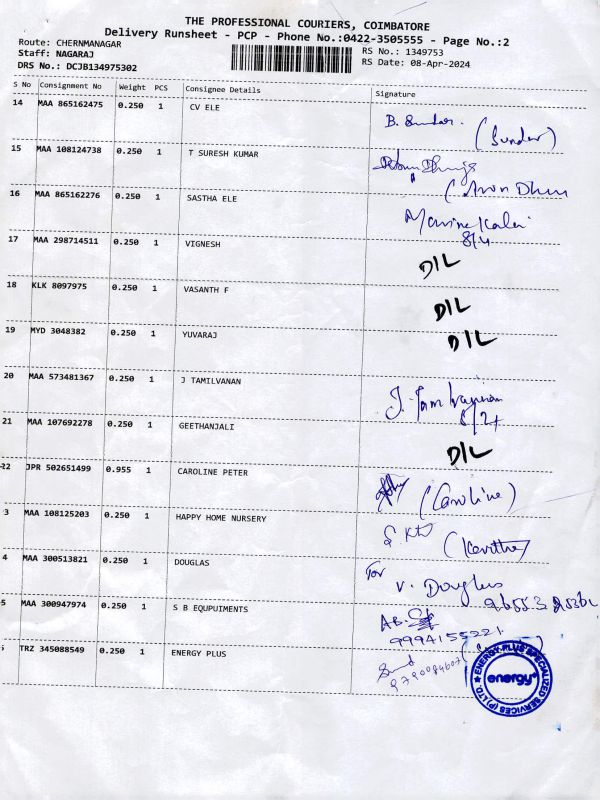 THE PROFESSIONAL COURIERS, COIMBATORE
Delivery Runsheet - PCP - Phone No.:0422-3505555 - Page No.:2
Route: CHERNMANAGAR
Staff: NAGARAJ
DRS No.: DCJB134975302
RS No.: 1349753
RS Date: 08-Apr-2024
S No Consignment No Weight PCS Consignee Details Signature
14 MAA 865162475 0.250 1 CV ELE B. Sundar. (Sundar)
15 MAA 108124738 0.250 1 T SURESH KUMAR
16 MAA 865162276 0.250 1 SASTHA ELE
8/4
17 MAA 298714511 0.250 1 VIGNESH D/L
18 KLK 8097975 0.250 1 VASANTH F D/L
19 MYD 3048382 0.250 1 YUVARAJ D/L
20 MAA 573481367 0.250 1 J TAMILVANAN
21 MAA 107692278 0.250 1 GEETHANJALI D/L
22 JPR 502651499 0.955 1 CAROLINE PETER (Caroline)
3 MAA 108125203 0.250 1 HAPPY HOME NURSERY
4 MAA 300513821 0.250 1 DOUGLAS For V. Douglas
5 MAA 300947974 0.250 1 S B EQUPUIMENTS
9994155221
TRZ 345088549 0.250 1 ENERGY PLUS
ENERGY PLUS SPECIALIZED SERVICES (P) LTD.
energy+